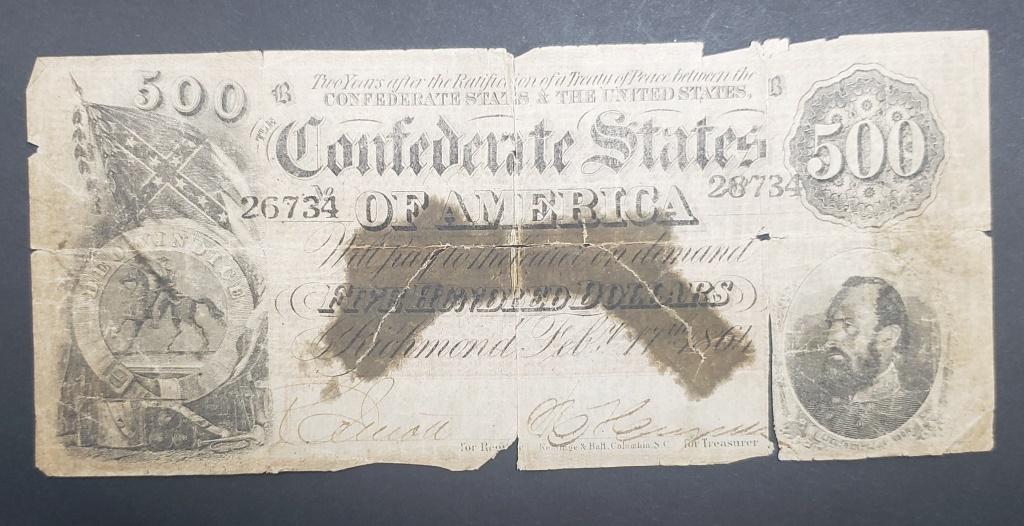 500 B Two Years after the Ratification of a Treaty of Peace between the B
CONFEDERATE STATES & THE UNITED STATES,
THE Confederate States 500
No 26734 28734
OF AMERICA
Will pay to the bearer on demand
DEO VINDICE
FIVE HUNDRED DOLLARS
Richmond Feby. 17th 1864
for Register Keatinge & Ball, Columbia, S.C. for Treasurer